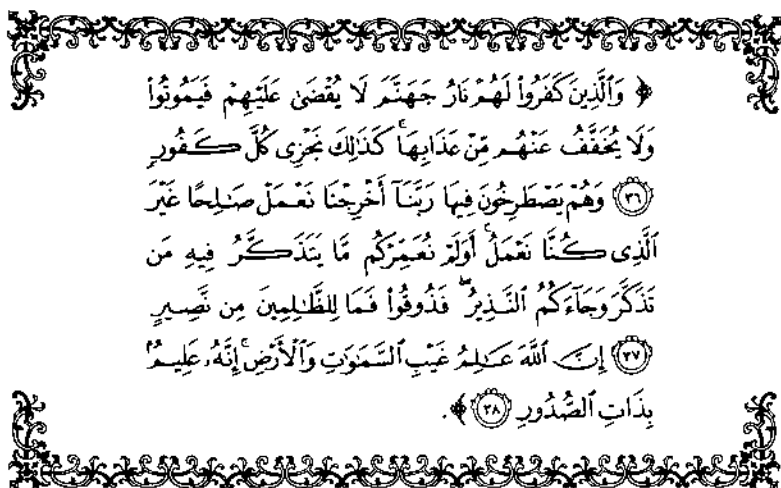 ﴿ وَٱلَّذِينَ كَفَرُوا۟ لَهُمْ نَارُ جَهَنَّمَ لَا يُقْضَىٰ عَلَيْهِمْ فَيَمُوتُوا۟
وَلَا يُخَفَّفُ عَنْهُم مِّنْ عَذَابِهَا ۚ كَذَٰلِكَ نَجْزِى كُلَّ كَفُورٍ
﴿٣٦﴾ وَهُمْ يَصْطَرِخُونَ فِيهَا رَبَّنَآ أَخْرِجْنَا نَعْمَلْ صَٰلِحًا غَيْرَ
ٱلَّذِى كُنَّا نَعْمَلُ ۚ أَوَلَمْ نُعَمِّرْكُم مَّا يَتَذَكَّرُ فِيهِ مَن
تَذَكَّرَ وَجَآءَكُمُ ٱلنَّذِيرُ ۖ فَذُوقُوا۟ فَمَا لِلظَّٰلِمِينَ مِن نَّصِيرٍ
﴿٣٧﴾ إِنَّ ٱللَّهَ عَٰلِمُ غَيْبِ ٱلسَّمَٰوَٰتِ وَٱلْأَرْضِ ۚ إِنَّهُۥ عَلِيمٌۢ
بِذَاتِ ٱلصُّدُورِ ﴿٣٨﴾ ﴾.